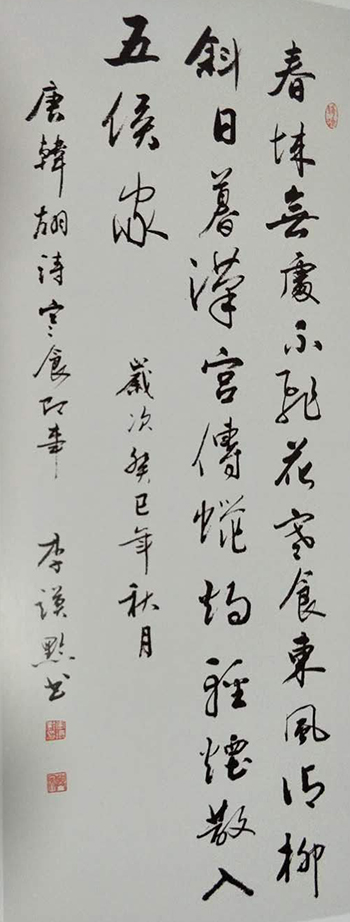 春城無處不飛花寒食東風御柳
斜日暮漢宮傳蠟燭輕煙散入
五侯家
歲次癸巳年秋月
唐韓翃詩寒食即事
李书